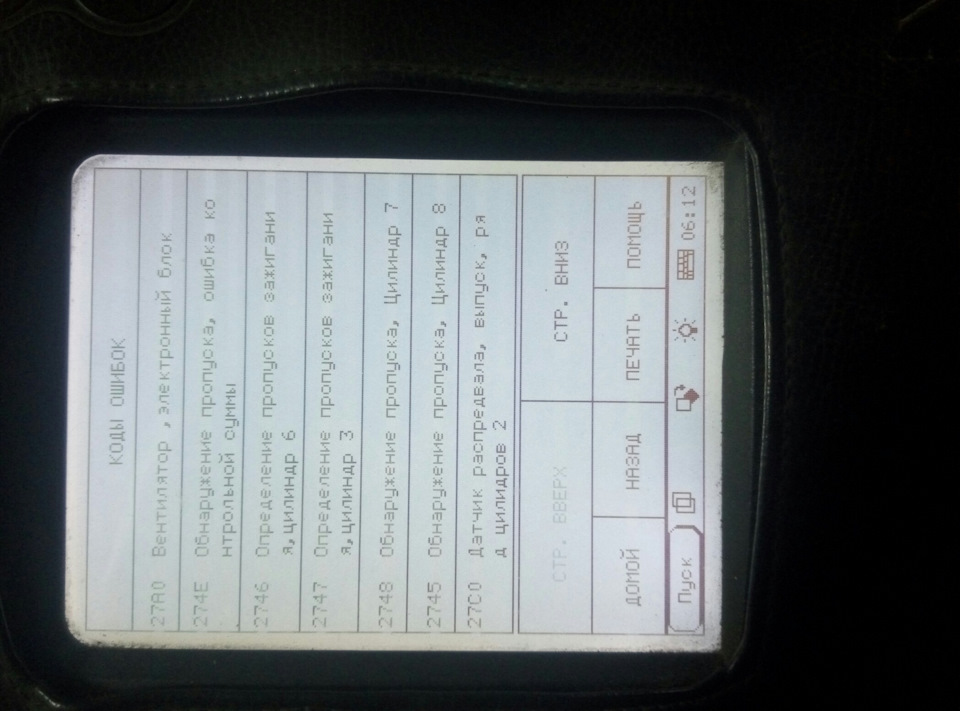 КОДЫ ОШИБОК
27A0 Вентилятор ,электронный блок
274E Обнаружение пропуска, ошибка ко
нтрольной суммы
2746 Определение пропусков зажигани
я,цилиндр 6
2747 Определение пропусков зажигани
я,цилиндр 3
2748 Обнаружение пропуска, Цилиндр 7
2745 Обнаружение пропуска, Цилиндр 8
27C0 Датчик распредвала, выпуск, ря
д цилидров 2
СТР. ВВЕРХ СТР. ВНИЗ
ДОМОЙ НАЗАД ПЕЧАТЬ ПОМОЩЬ
Пуск 06:12